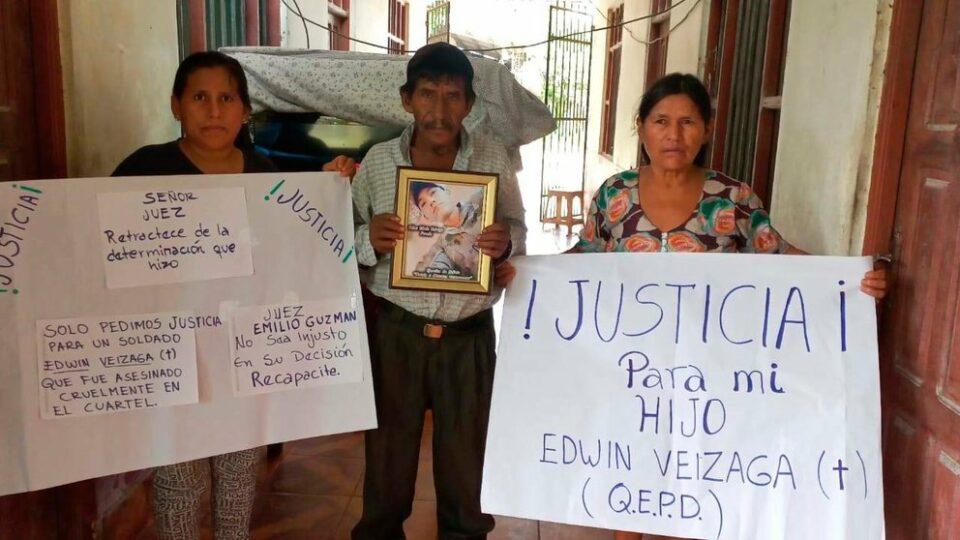 ¡JUSTICIA!
SEÑOR
JUEZ
Retractece de la
determinación que
hizo
¡JUSTICIA!
SOLO PEDIMOS JUSTICIA
PARA UN SOLDADO
EDWIN VEIZAGA (†)
QUE FUE ASESINADO
CRUELMENTE EN
EL CUARTEL.
JUEZ
EMILIO GUZMAN
No Sea Injusto
En Su Decisión
Recapacite.
!JUSTICIA¡
Para mi
HIJO
EDWIN VEIZAGA (†)
(Q.E.P.D.)